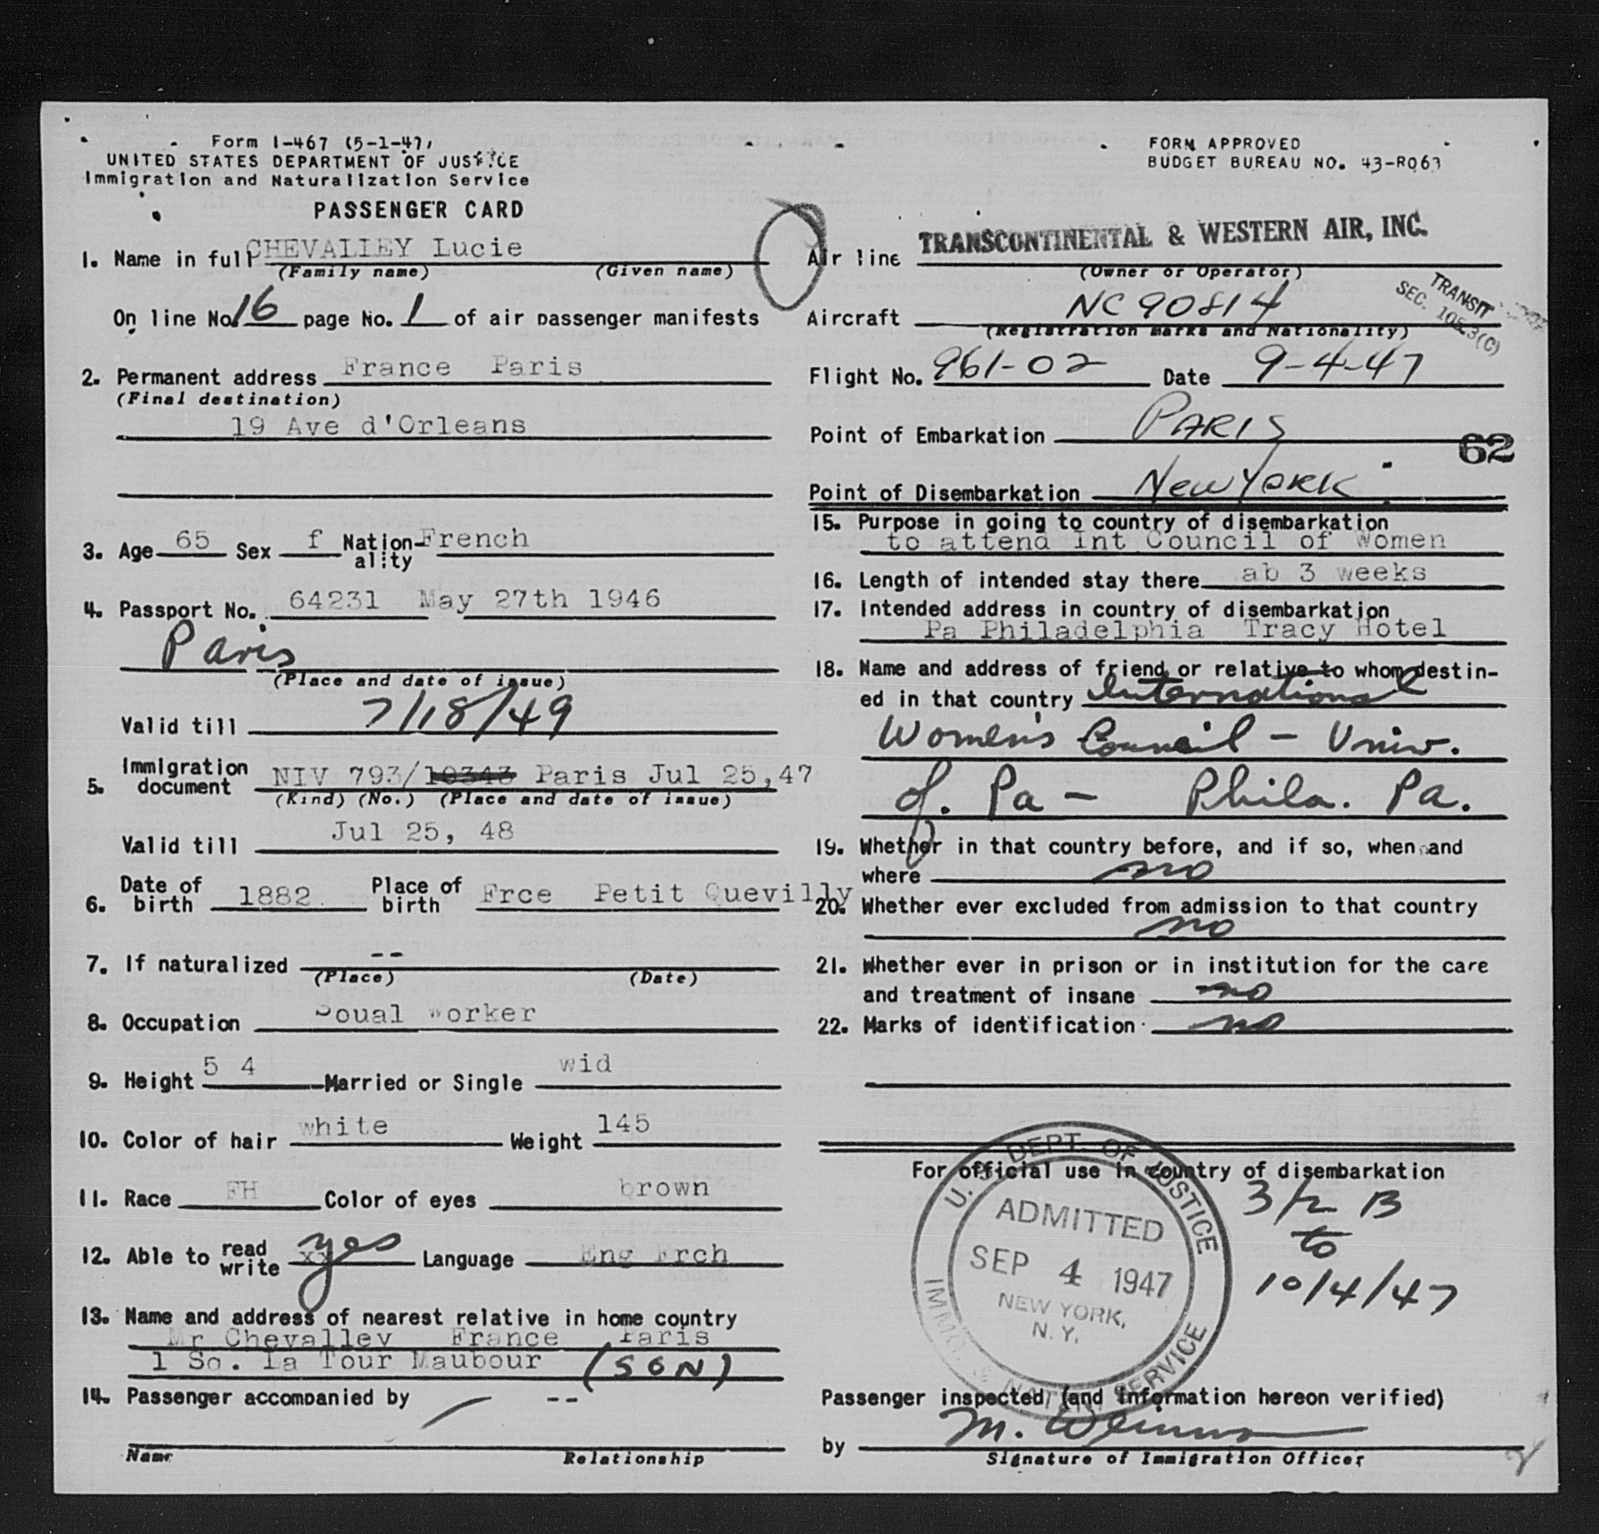 Form I-467 (5-1-47)
UNITED STATES DEPARTMENT OF JUSTICE
Immigration and Naturalization Service
PASSENGER CARD
FORM APPROVED
BUDGET BUREAU NO. 43-R063
1. Name in full CHEVALLEY Lucie
(Family name) (Given name)
On line No. 16 page No. 1 of air passenger manifests
2. Permanent address France Paris
(Final destination)
19 Ave d'Orleans
3. Age 65 Sex f Nation-ality French
4. Passport No. 64231 May 27th 1946
Paris
(Place and date of issue)
Valid till 7/18/49
5. Immigration document NIV 793/10343 Paris Jul 25,47
(Kind) (No.) (Place and date of issue)
Valid till Jul 25, 48
6. Date of birth 1882 Place of birth Frce Petit Quevilly
7. If naturalized --
(Place) (Date)
8. Occupation Soual Worker
9. Height 5 4 Married or Single wid
10. Color of hair white Weight 145
11. Race FH Color of eyes brown
12. Able to read write xx yes Language Eng Frch
13. Name and address of nearest relative in home country
Mr Chevalley France Paris
1 Sq. La Tour Maubour (SON)
14. Passenger accompanied by --
Name Relationship
Air line TRANSCONTINENTAL & WESTERN AIR, INC.
(Owner or Operator)
TRANSIT
SEC. 105.3(C)
Aircraft NC90814
(Registration marks and Nationality)
Flight No. 961-02 Date 9-4-47
Point of Embarkation PARIS
62
Point of Disembarkation New YORK
15. Purpose in going to country of disembarkation
to attend Int Council of Women
16. Length of intended stay there ab 3 weeks
17. Intended address in country of disembarkation
Pa Philadelphia Tracy Hotel
18. Name and address of friend or relative to whom destin-
ed in that country International
Women's Council - Univ.
of. Pa - Phila. Pa.
19. Whether in that country before, and if so, when and
where no
20. Whether ever excluded from admission to that country
no
21. Whether ever in prison or in institution for the care
and treatment of insane no
22. Marks of identification no
For official use in country of disembarkation
U. S. DEPT. OF JUSTICE
ADMITTED
SEP 4 1947
NEW YORK,
N. Y.
IMMIG. & NATZN. SERVICE
3/2 B
to
10/4/47
Passenger inspected (and information hereon verified)
by M.
Signature of Immigration Officer